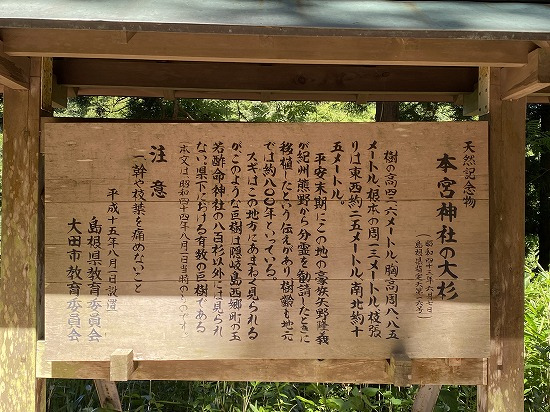 天然記念物
本宮神社の大杉
(昭和四十三年六月七日
島根県指定天第一六号)
樹の高四二、六メートル、胸高周八、八五
メートル、根本の周一三メートル、枝張
りは東西約二五メートル、南北約十
五メートル。
平安末期にこの地の豪族矢野隆義
が紀州熊野から分霊を勧請したときに
移植したという伝えがあり、樹齢も地元
では約八〇〇年といっている。
スギはこの地方にあまねく見られる
がこのような巨樹は隠岐島西郷町の玉
若酢命神社の八百杉以外には見られ
ない県下における有数の巨樹である
(本文は昭和四十四年八月一日当時のものです。)
注意
一、幹や枝葉を痛めないこと
平成十五年八月一日設置
島根県教育委員会
大田市教育委員会